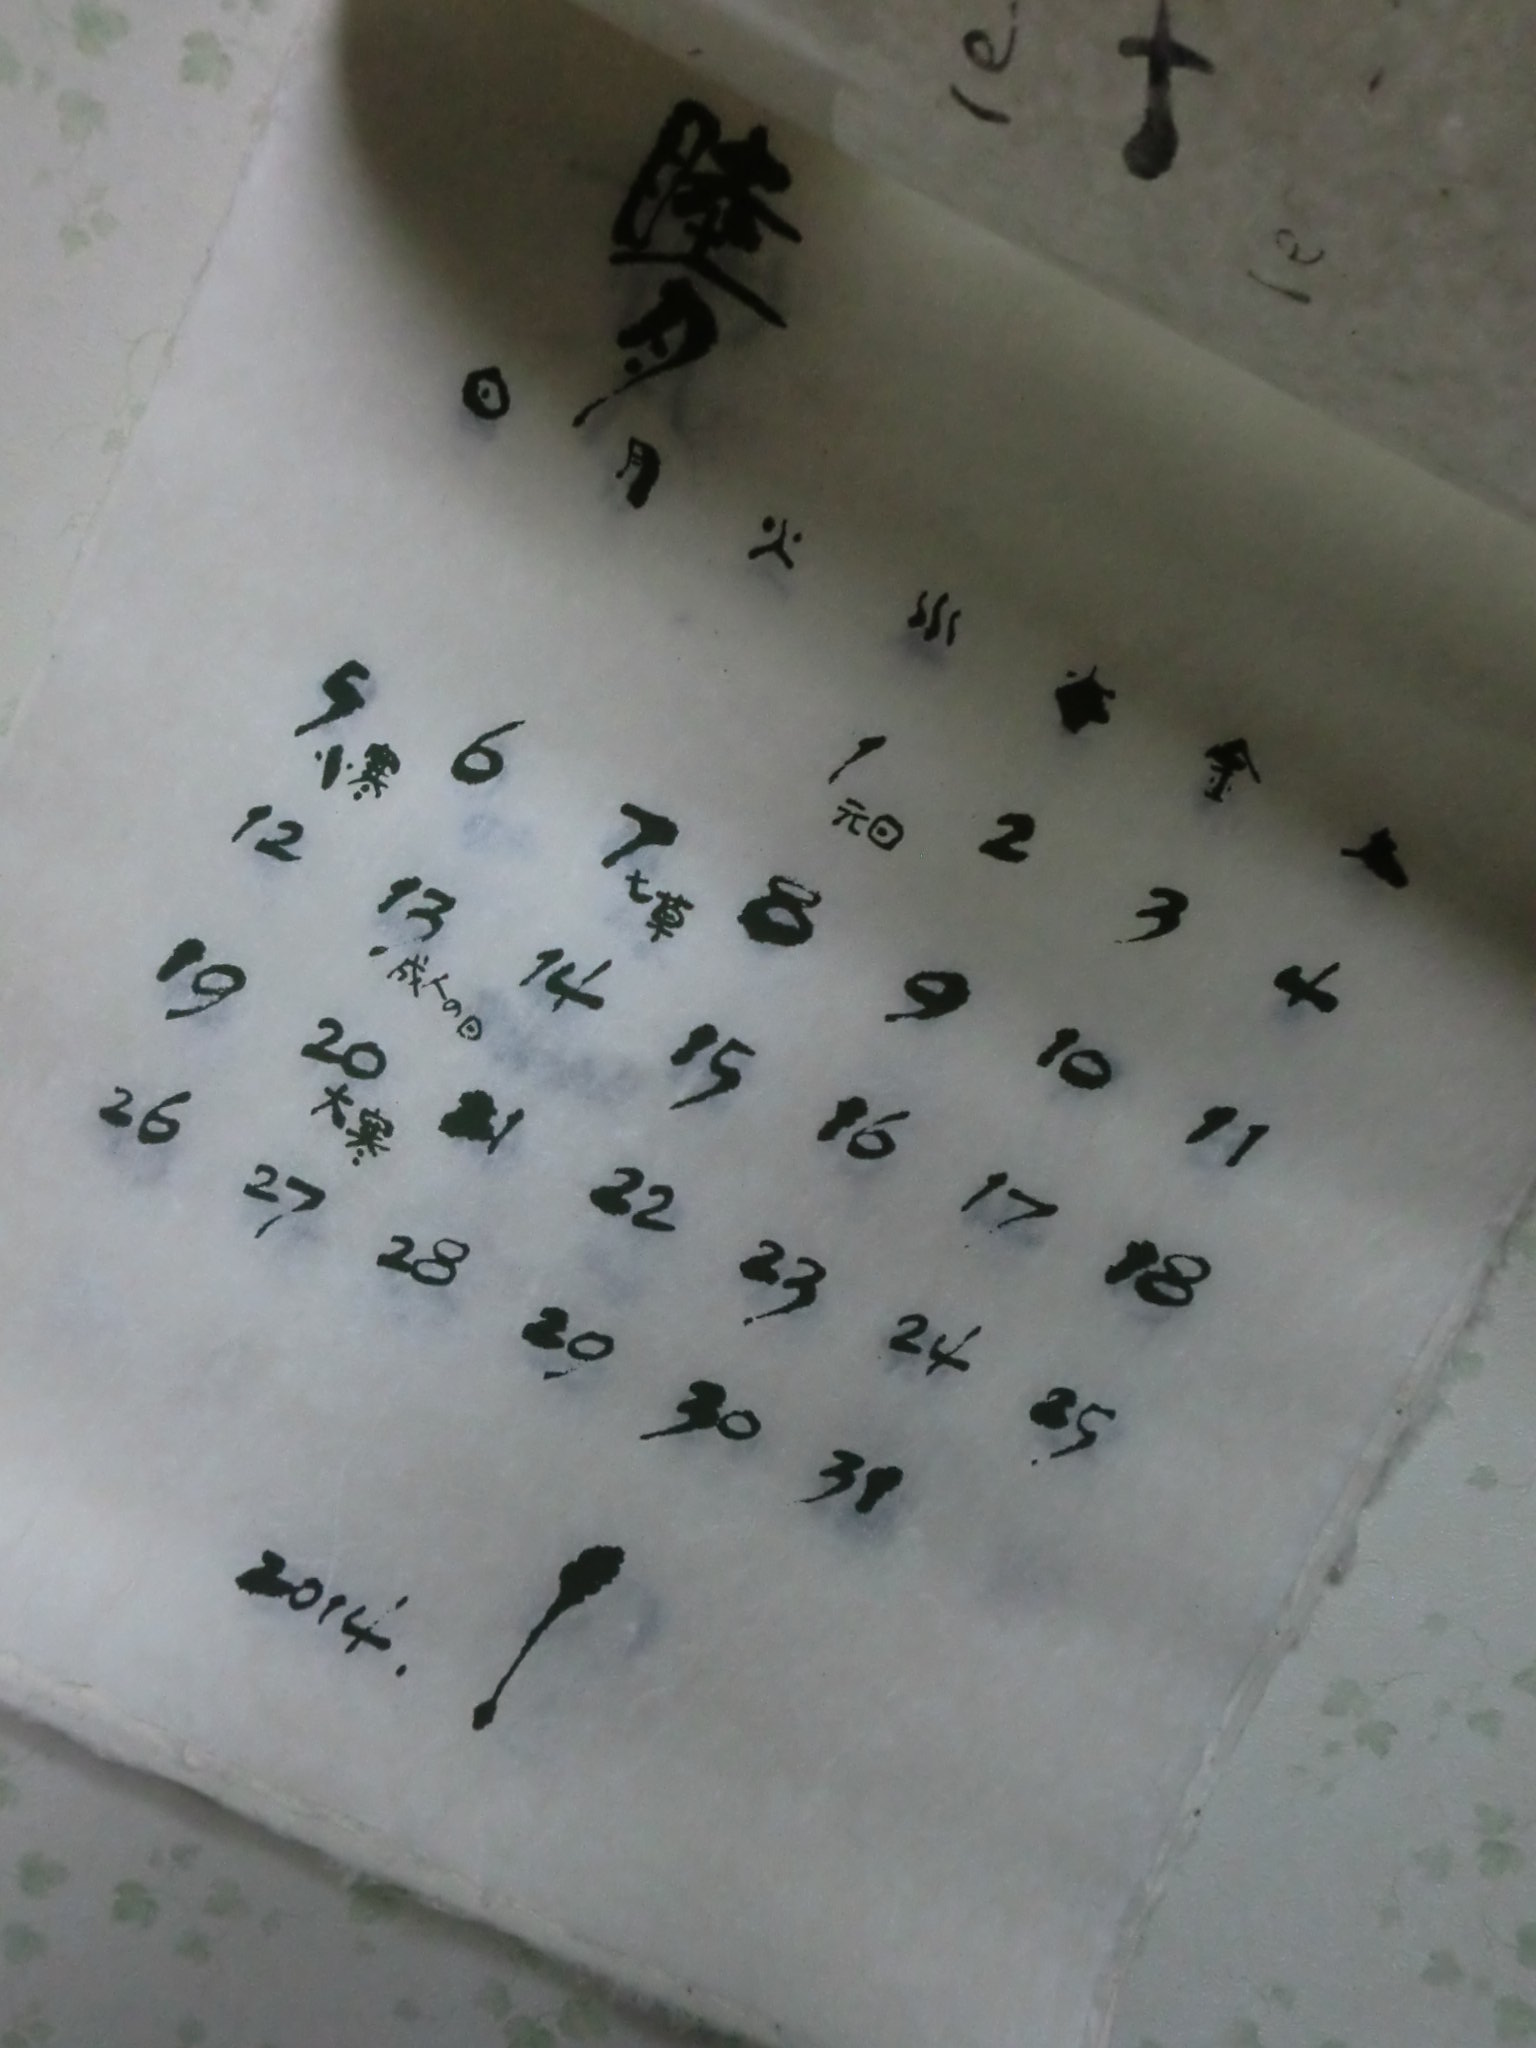 睦月
日 月 火 水 木 金 土
1 2 3 4
元日
5 6 7 8 9 10 11
小寒 七草
12 13 14 15 16 17 18
成人の日
19 20 21 22 23 24 25
大寒
26 27 28 29 30 31
2014. 1